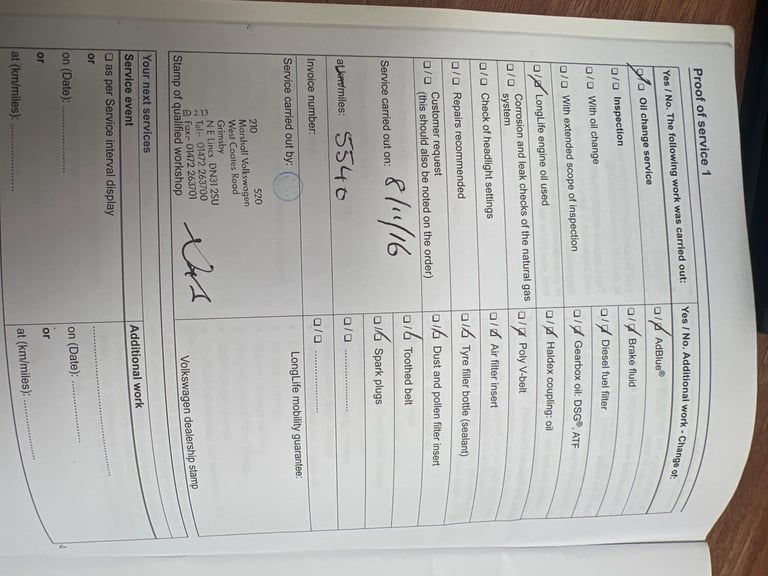 Proof of service 1
Yes / No. The following work was carried out:
☐ / ☐ Oil change service
☐ / ☐ Inspection
☐ / ☐ With oil change
☐ / ☐ With extended scope of inspection
☐ / ☐ LongLife engine oil used
☐ / ☐ Corrosion and leak checks of the natural gas
system
☐ / ☐ Check of headlight settings
☐ / ☐ Repairs recommended
☐ / ☐ Customer request
(this should also be noted on the order)
Service carried out on: 8/11/16
at km/miles: 5540
Invoice number:
Service carried out by:
210 520
Marshall Volkswagen
West Coates Road
Grimsby
N E Lincs DN31 2SU
Tel:- 01472 263700
Fax:- 01472 263701
Stamp of qualified workshop
Yes / No. Additional work - Change of:
☐ / ☐ AdBlue®
☐ / ☐ Brake fluid
☐ / ☐ Diesel fuel filter
☐ / ☐ Gearbox oil: DSG®, ATF
☐ / ☐ Haldex coupling: oil
☐ / ☐ Poly V-belt
☐ / ☐ Air filter insert
☐ / ☐ Tyre filler bottle (sealant)
☐ / ☐ Dust and pollen filter insert
☐ / ☐ Toothed belt
☐ / ☐ Spark plugs
☐ / ☐ ....................
☐ / ☐ ....................
LongLife mobility guarantee:
Volkswagen dealership stamp
Your next services
Service event
☐ as per Service interval display
or
on (Date): ....................
or
at (km/miles): ....................
Additional work
........................................
on (Date): ....................
or
at (km/miles): ....................